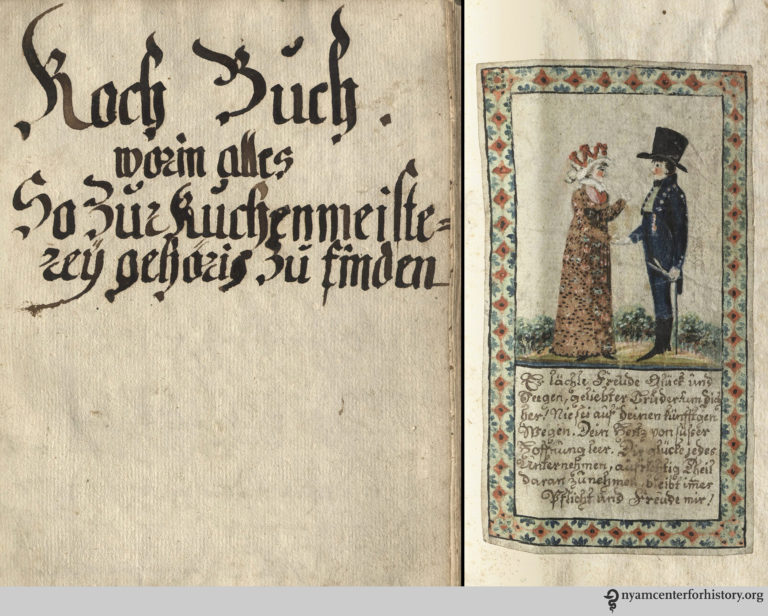 Koch Buch.
worin alles
So Zur Kuchenmeiste=
reÿ gehörig Zu finden
Es lächle Freude Glück und
Seegen, geliebter Bruder um dich
her! Nie sei auf deinen künfftgen
Wegen. Dein Hertz von süsser
Hoffnung leer. Dir glücke jedes
Unternehmen, aufrichtig Theil
daran zu nehmen, bleibt im̄er
Pflicht und Freude mir!
nyamcenterforhistory.org